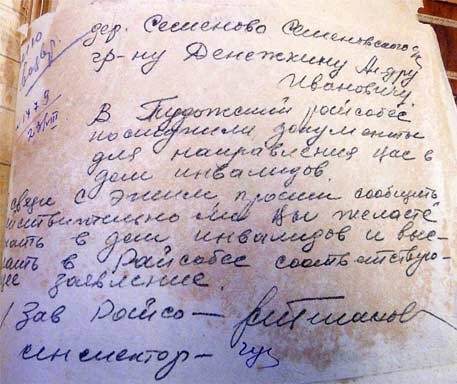 дер. Семеново Семеновского с/с
гр-ну Денежкину Ан-дру
Ивановичу.
В Пудожский райсобес
поступили документы
для направления Вас в
дом инвалидов.
связи с этим просим сообщить
действительно ли Вы желаете
в дом инвалидов и выс-
лать в Райсобес соответствую-
щее заявление.
Зав Райсо —
инспектор —
1479